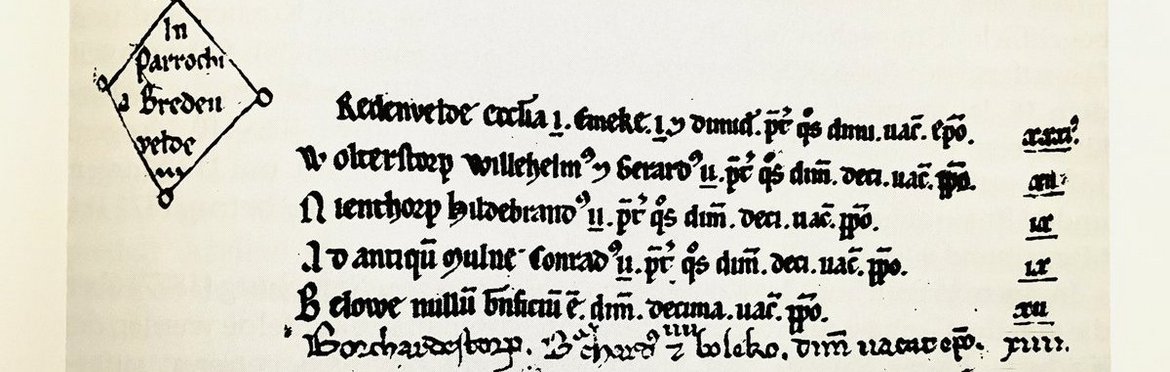 In
Parrochi
a Breden
velde
Redenvelde ecclia ı. Emeke. ı ⁊ dimid. p̄t̓ q̊s dimi. uac̄. ep̄o. xxxı
W olterstorp Willehelmꝰ ⁊ Gerardꝰ ıı. p̄t̓ q̊s dim̄. deci. uac̄.
N ienthorp Hildebrandꝰ ıı. p̄t̓ q̊s dim̄. deci. uac̄. ıx
A d antiqū Mulne Conradꝰ ıı. p̄t̓ q̊s dim̄. deci. uac̄. ıx
B elowe nullū bn̄ficiū ē. dim̄. decima. uac̄. xıı
Borchardestorp. ıııı ⁊ boleko. dim̄ uacat ep̄o. xıııı.